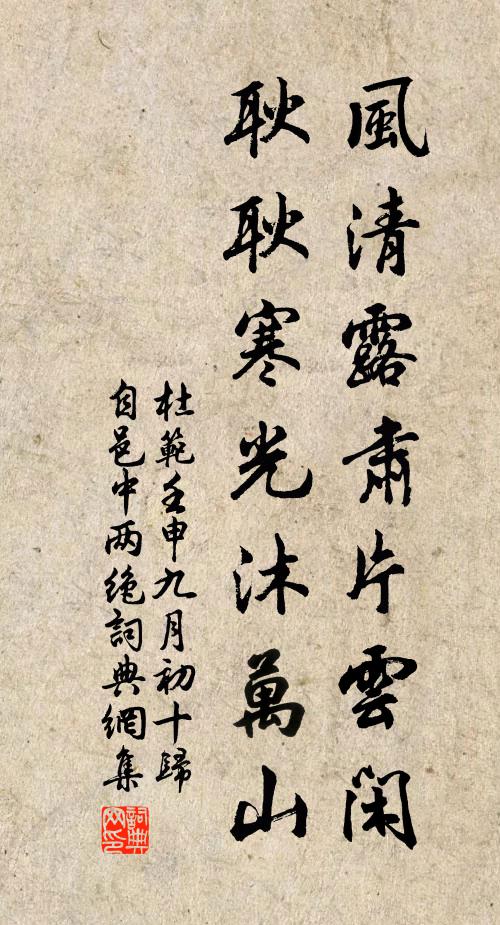 風清露肅片雲閑
耿耿寒光沐萬山
杜範壬申九月初十歸
自邑中兩絕詞典網集
詞典網印